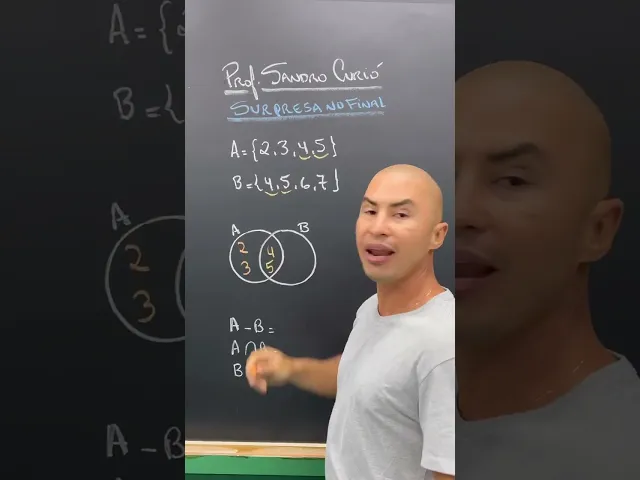 Prof. Sandro Curió
SURPRESA NO FINAL
A = {2, 3, 4, 5}
B = {4, 5, 6, 7}
A B
2 4
3 5
A - B =
A ∩
B